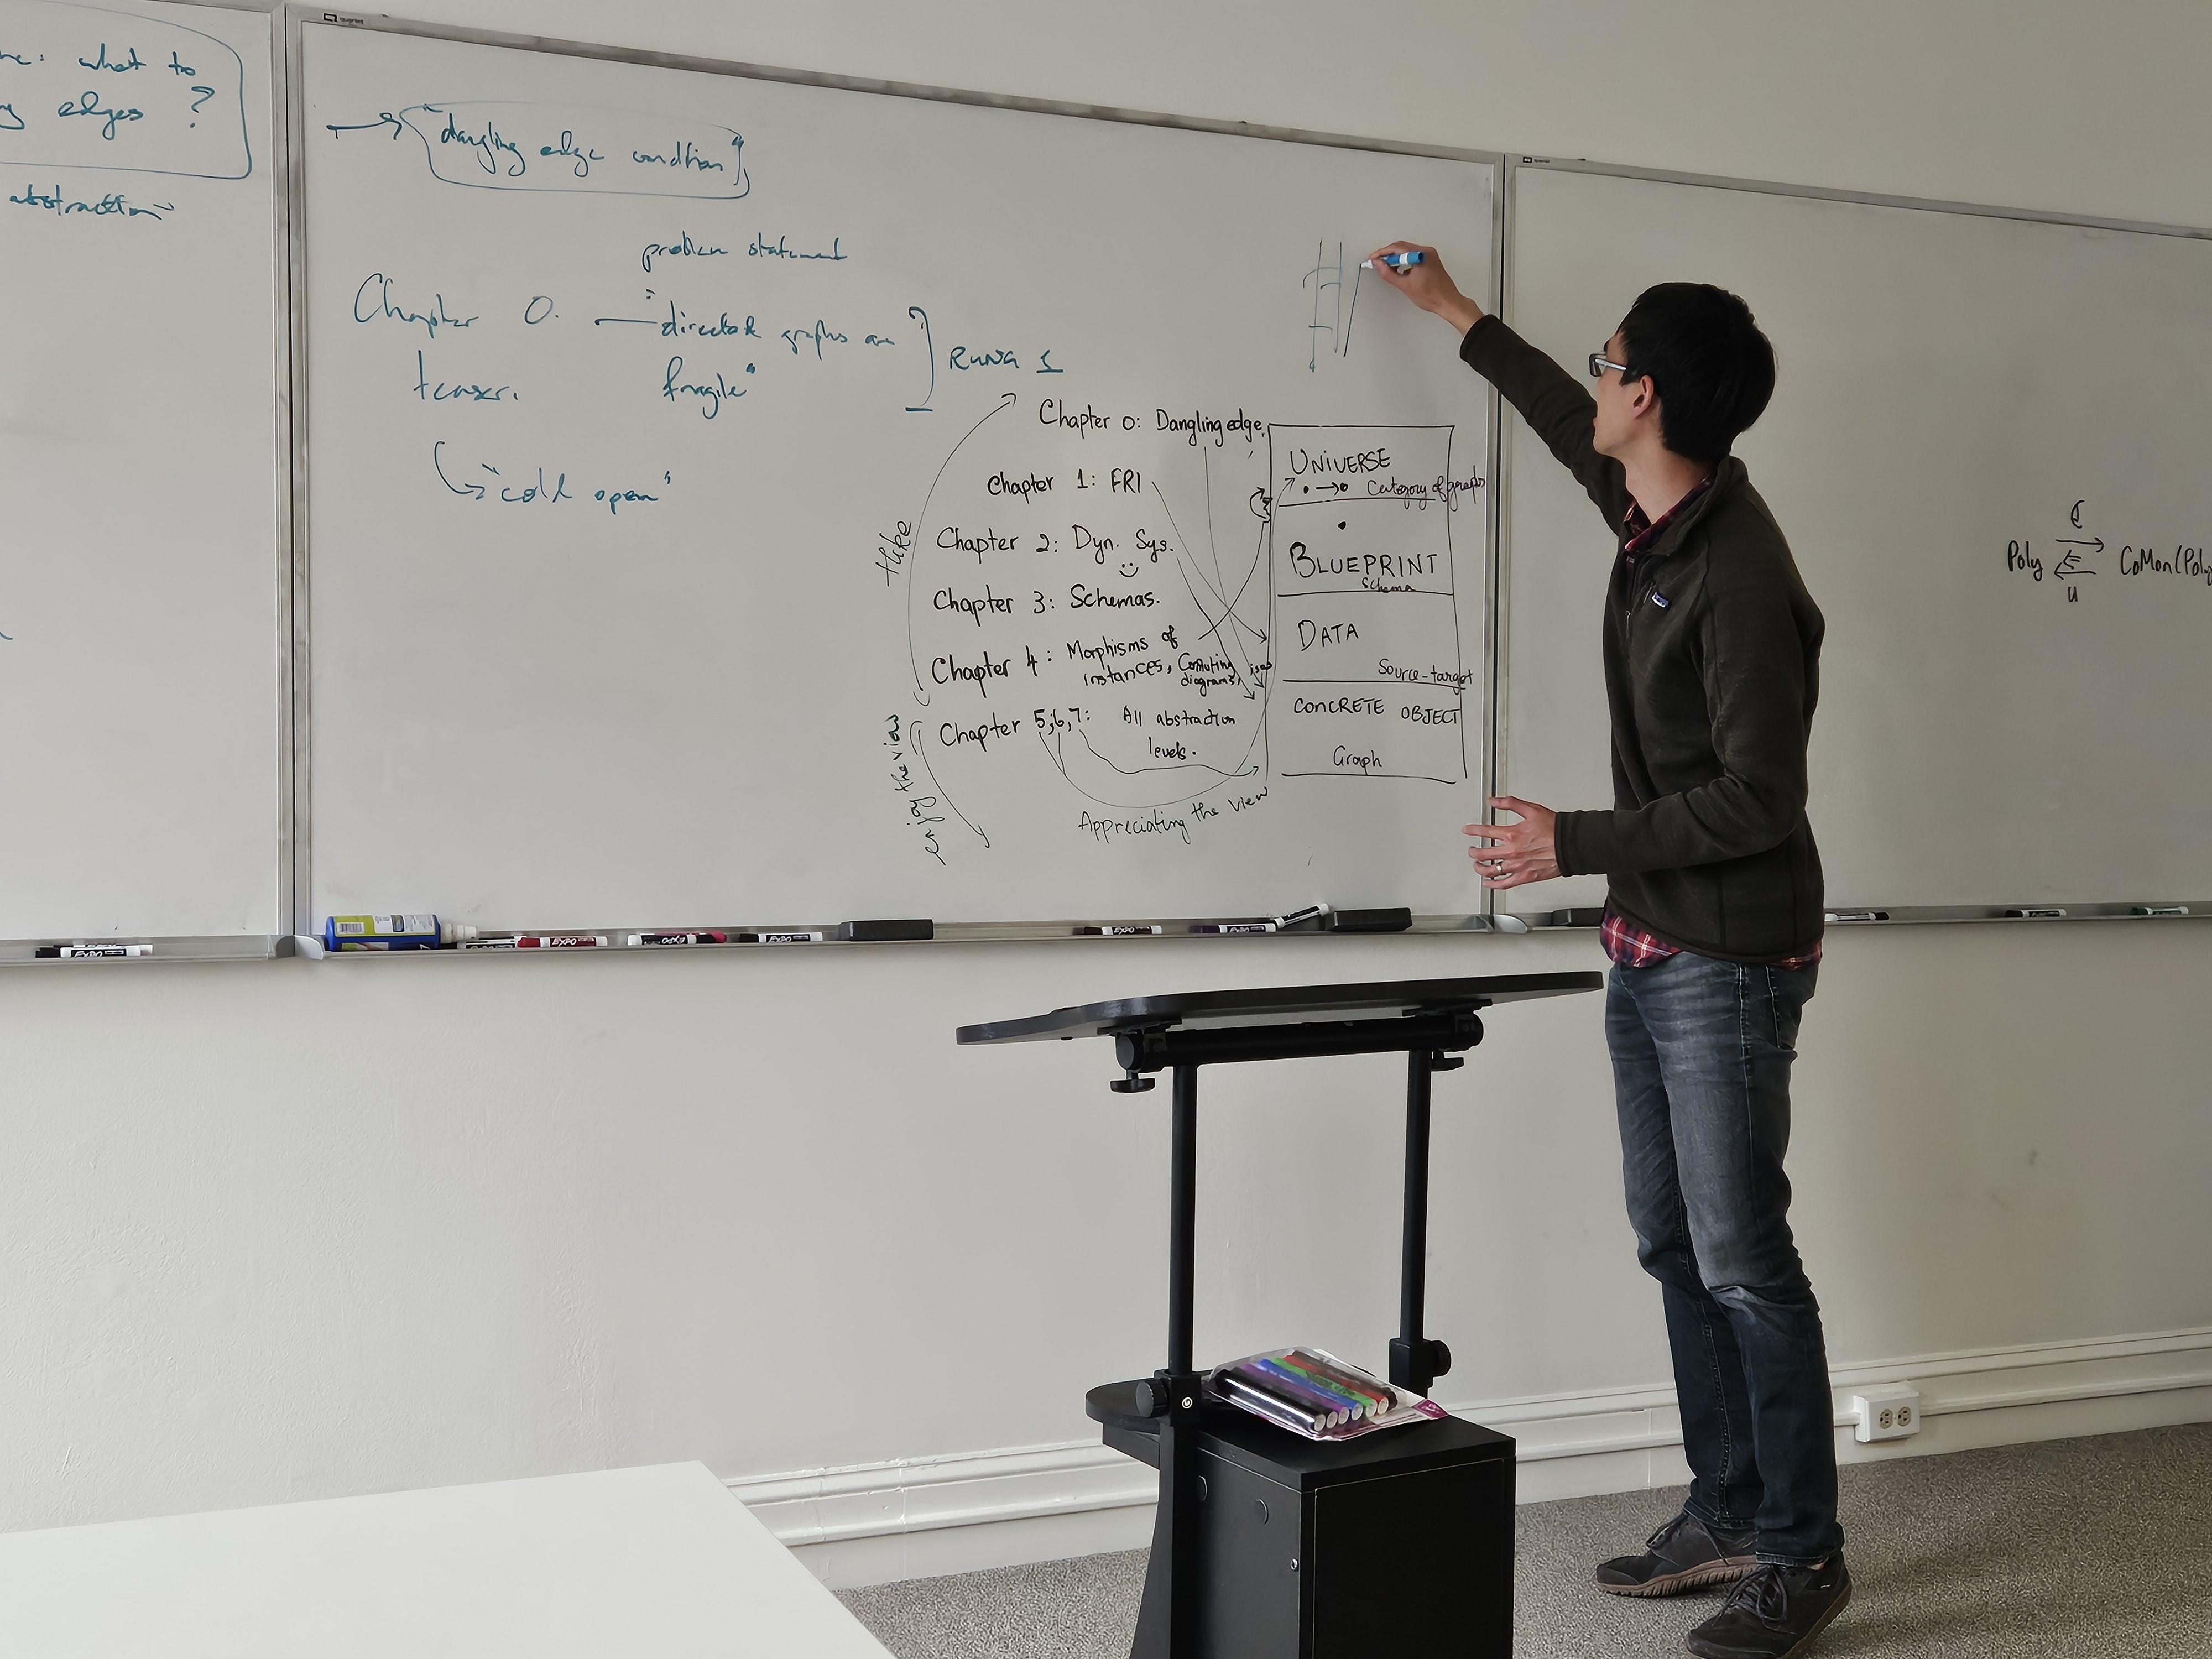 what to
edges ?
abstraction"
"dangling edge condition"
problem statement
:
Chapter 0. — "directed graphs are
teaser. fragile"
RUNG 1
"cold open"
Chapter 0: Dangling edge.
Chapter 1: FRI
Chapter 2: Dyn. Sys.
Chapter 3: Schemas.
Chapter 4: Morphisms of
instances,
diagrams,
Chapter 5,6,7: All abstraction
levels.
Hike
enjoy the view
Appreciating the view
UNIVERSE
Category of graphs
BLUEPRINT
Schema
DATA
Source-target
CONCRETE OBJECT
Graph
Poly
CoMon(Poly
u
EXPO
EXPO
EXPO
EXPO